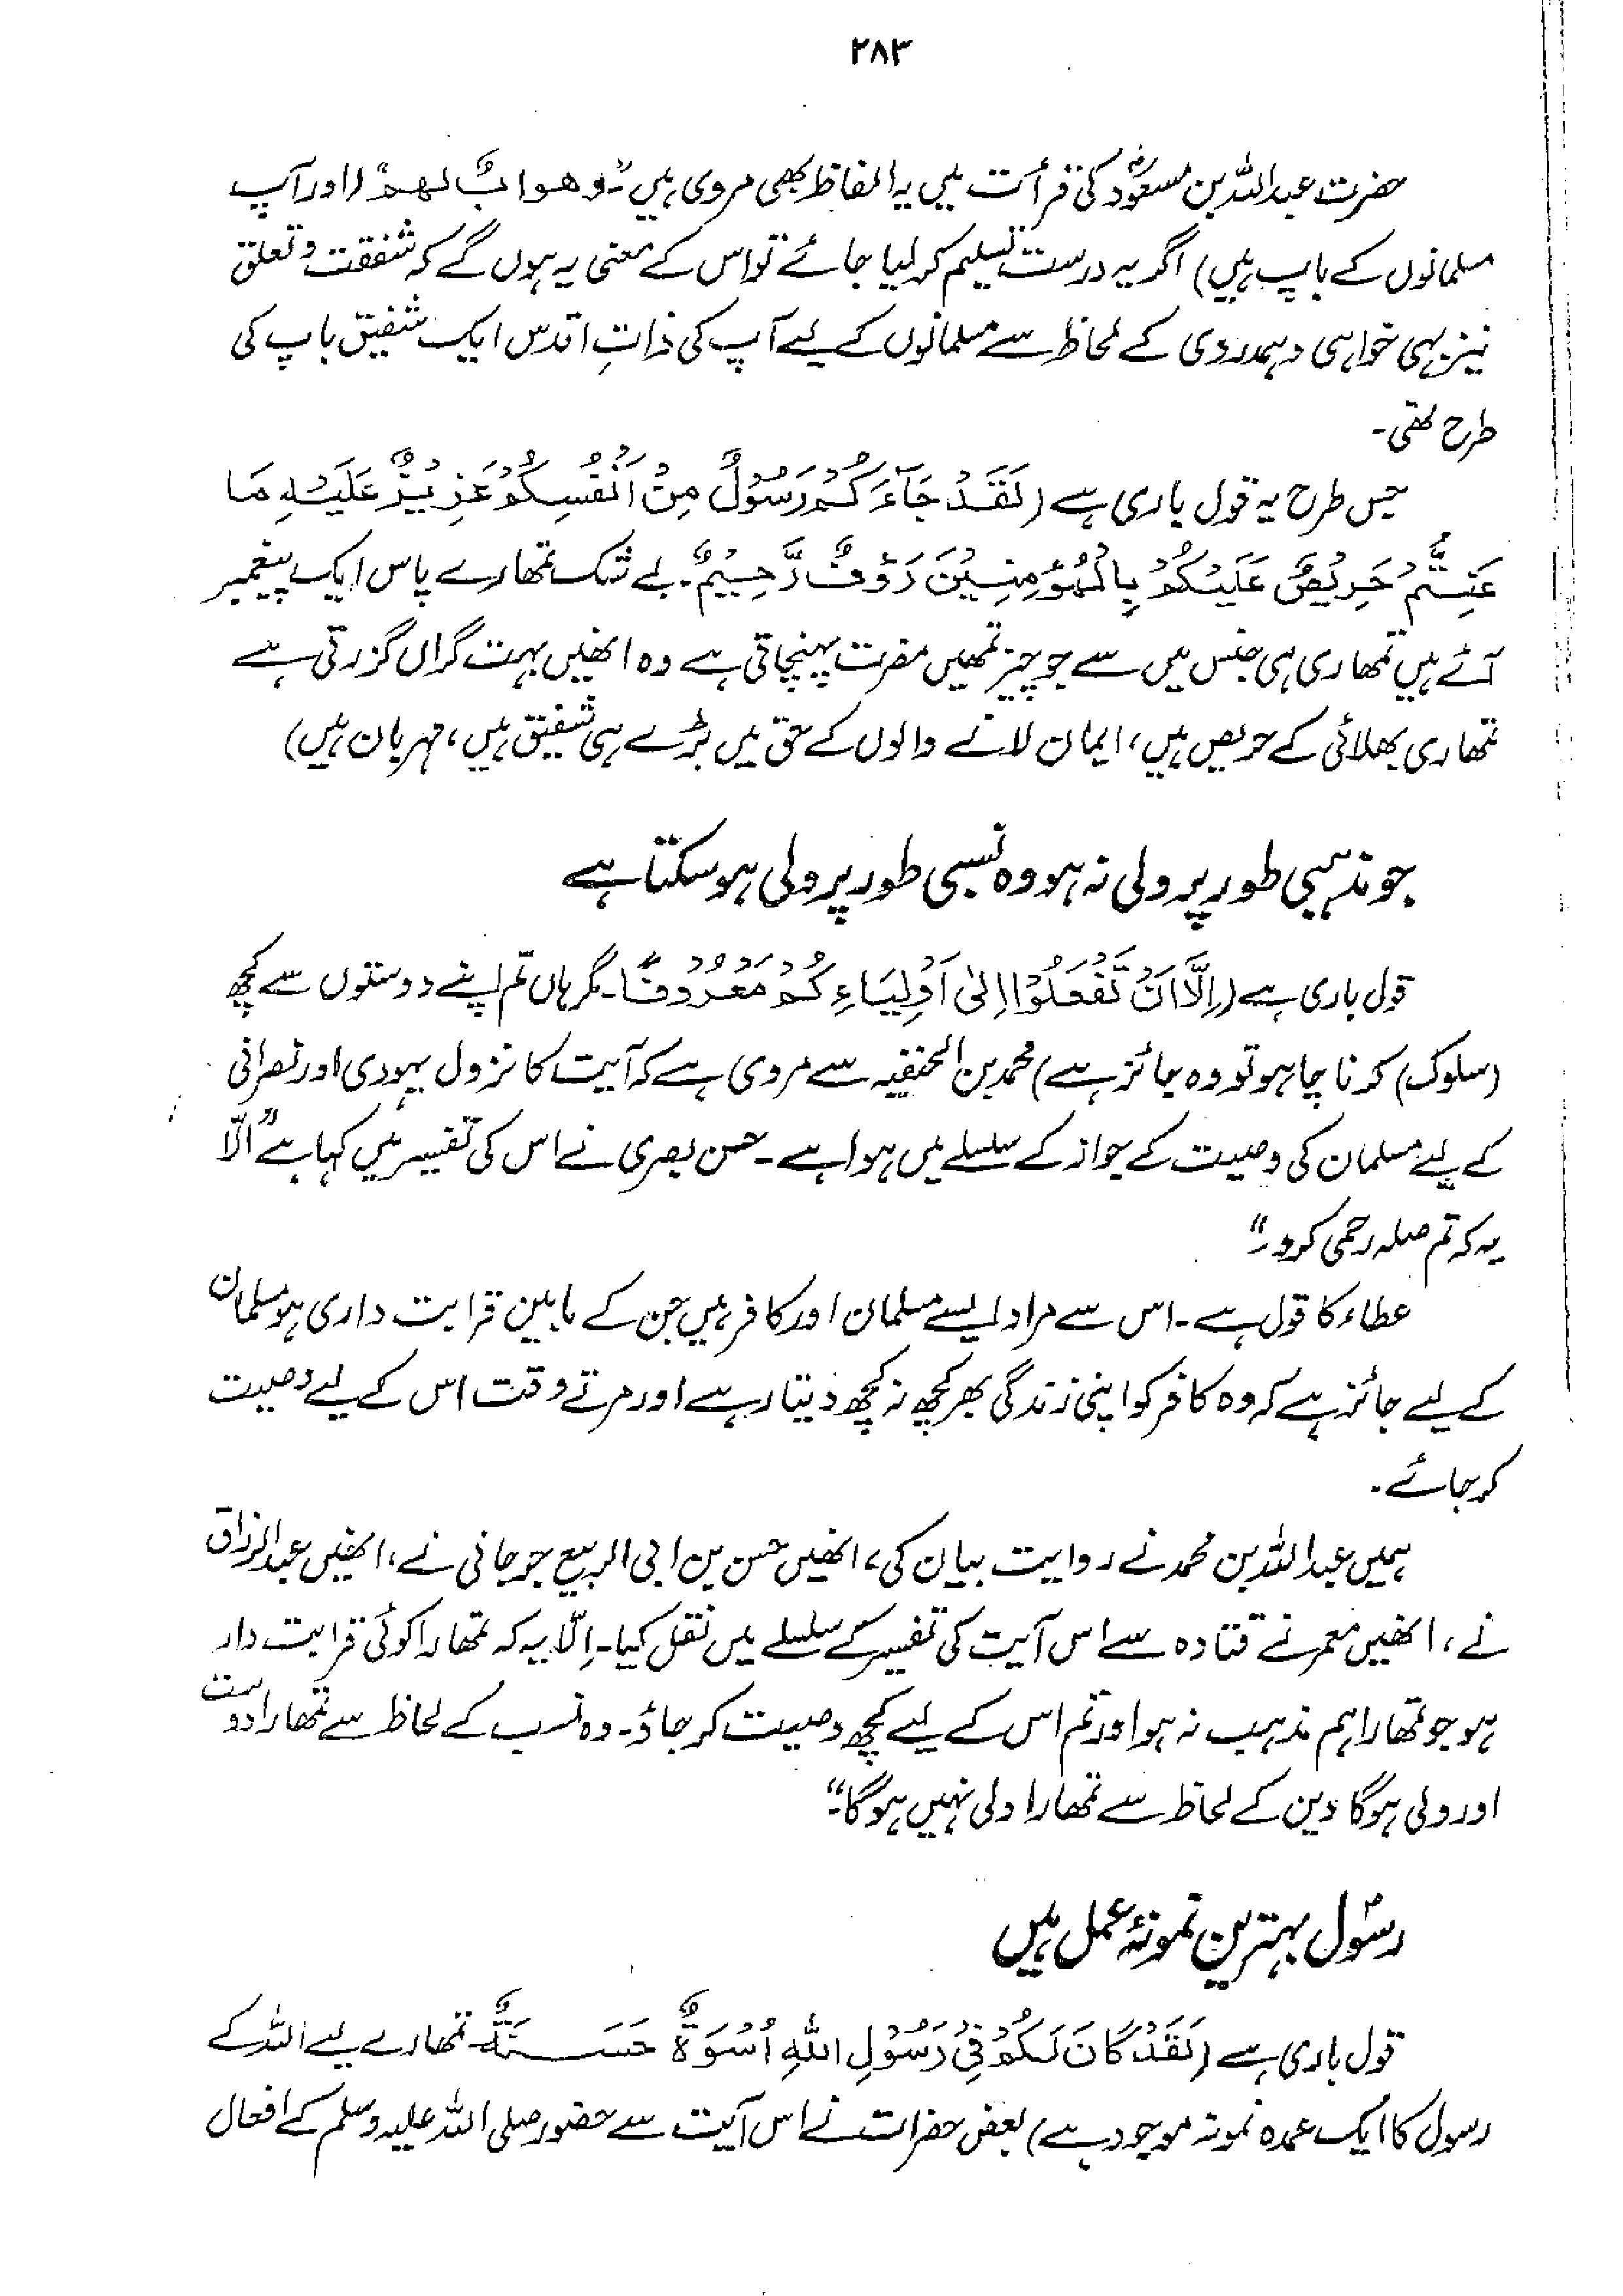 ۲۸۳
حضرت عبداللہ بن مسعودؓ کی قرأت میں یہ الفاظ بھی مروی ہیں "وھو ابٌ لھم" (اور آپ
مسلمانوں کے باپ ہیں) اگر یہ درست تسلیم کر لیا جائے تو اس کے معنی یہ ہوں گے کہ شفقت و تعلق
نیز بہی خواہی و ہمدردی کے لحاظ سے مسلمانوں کے لیے آپ کی ذاتِ اقدس ایک شفیق باپ کی
طرح تھی۔
جس طرح یہ قول باری ہے (لَقَدْ جَآءَكُمْ رَسُوْلٌ مِنْ اَنْفُسِكُمْ عَزِيْزٌ عَلَيْهِ مَا
عَنِتُّمْ حَرِيْصٌ عَلَيْكُمْ بِالْمُؤْمِنِيْنَ رَؤُفٌ رَّحِيْمٌ۔ بے شک تمھارے پاس ایک پیغمبر
آئے ہیں تمھاری ہی جنس میں سے جو چیز تمھیں مضرت پہنچاتی ہے وہ انھیں بہت گراں گزرتی ہے
تمھاری بھلائی کے حریص ہیں، ایمان لانے والوں کے حق میں بڑے ہی شفیق ہیں، مہربان ہیں)
جو مذہبی طور پر ولی نہ ہو وہ نسبی طور پر ولی ہو سکتا ہے
قول باری ہے (اِلَّا اَنْ تَفْعَلُوْا اِلٰی اَوْلِيَاءِكُمْ مَعْرُوْفًا۔ مگر ہاں تم اپنے دوستوں سے کچھ
(سلوک) کرنا چاہو تو وہ جائز ہے) محمد بن الحنفیہ سے مروی ہے کہ آیت کا نزول یہودی اور نصرانی
کے لیے مسلمان کی وصیت کے جواز کے سلسلے میں ہوا ہے۔ حسن بصری نے اس کی تفسیر میں کہا ہے "الّا
یہ کہ تم صلہ رحمی کرو۔"
عطاء کا قول ہے۔ اس سے مراد ایسے مسلمان اور کافر ہیں جن کے مابین قرابت داری ہو مسلمان
کے لیے جائز ہے کہ وہ کافر کو اپنی زندگی بھر کچھ نہ کچھ دیتا رہے اور مرتے وقت اس کے لیے وصیت
کر جائے۔
ہمیں عبداللہ بن محمد نے روایت بیان کی، انھیں حسن بن ابی الربیع جرجانی نے، انھیں عبدالرزاق
نے، انھیں معمر نے قتادہ سے اس آیت کی تفسیر کے سلسلے میں نقل کیا۔ اِلّا یہ کہ تمھارا کوئی قرابت دار
ہو جو تمھارا ہم مذہب نہ ہو اور تم اس کے لیے کچھ وصیت کر جاؤ۔ وہ نسب کے لحاظ سے تمھارا دوست
اور ولی ہوگا دین کے لحاظ سے تمھارا ولی نہیں ہوگا۔"
رسولؐ بہترین نمونۂ عمل ہیں
قول باری ہے (لَقَدْ كَانَ لَكُمْ فِيْ رَسُوْلِ اللهِ اُسْوَةٌ حَسَنَةٌ۔ تمھارے لیے اللہ کے
رسول کا ایک عمدہ نمونہ موجود ہے) بعض حضرات نے اس آیت سے حضور صلی اللہ علیہ وسلم کے افعال